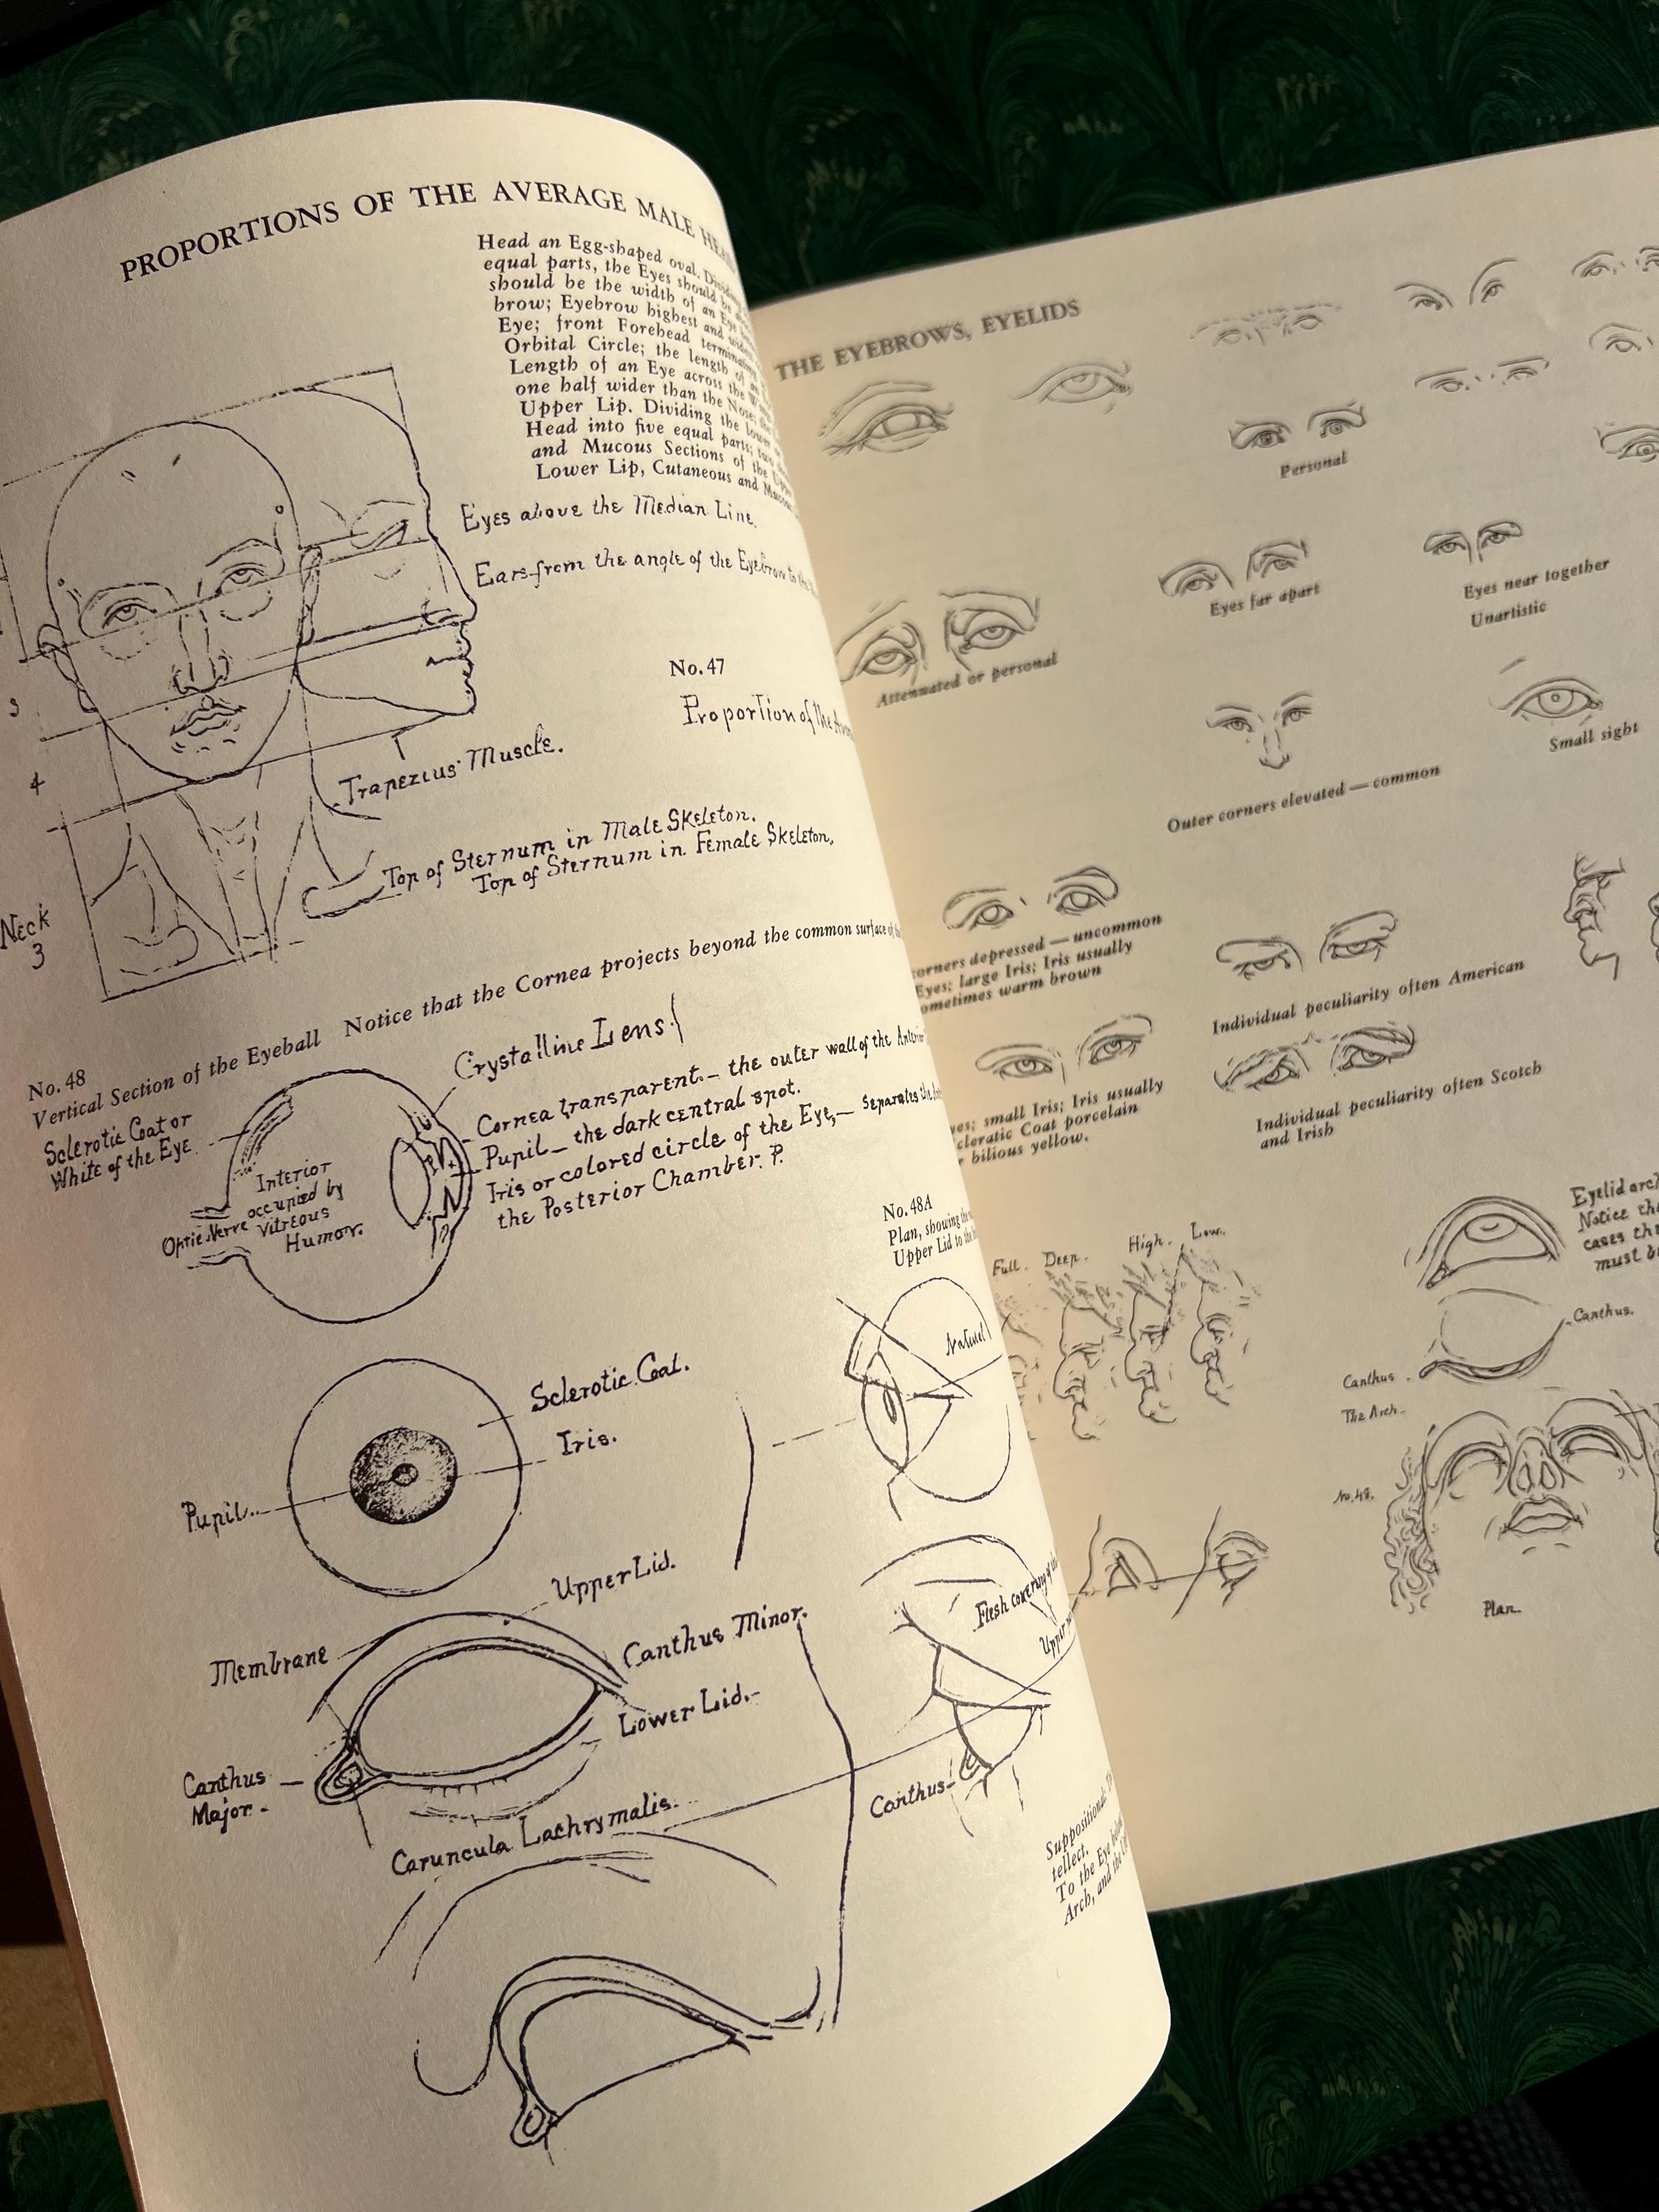 PROPORTIONS OF THE AVERAGE MALE
Head an Egg-shaped oval.
equal parts, the Eyes should be
should be the width of an Eye
brow; Eyebrow highest and
Eye; front Forehead
Orbital Circle; the length of
Length of an Eye across the
one half wider than the Nose;
Upper Lip. Dividing the lower
Head into five equal parts;
and Mucous Sections of the
Lower Lip, Cutaneous and
Eyes above the Median Line.
Ears-from the angle of the Eyebrow to
No. 47
Proportion of the
3
4
Trapezius Muscle.
Top of Sternum in Male Skeleton.
Top of Sternum in Female Skeleton,
Neck
3
No. 48
Vertical Section of the Eyeball Notice that the Cornea projects beyond the common surface of
Sclerotic Coat or
White of the Eye
Crystalline Lens.
Cornea transparent.— the outer wall of the
Pupil — the dark central spot.
Iris or colored circle of the Eye,— Separates the
the Posterior Chamber. P.
Interior
occupied by
Vitreous
Humor.
Optic Nerve
Sclerotic Coat.
Iris.
Pupil
No. 48A
Plan, showing the
Upper Lid to the
Natural
Upper Lid.
Membrane
Canthus Minor.
Lower Lid.-
Canthus
Major-
Caruncula Lachrymalis.
Flesh covering of the
Upper
Canthus-
tellect.
To the Eye
Arch, and the
THE EYEBROWS, EYELIDS
Personal
Eyes far apart
Eyes near together
Unartistic
Attenuated or personal
Small sight
Outer corners elevated — common
corners depressed — uncommon
Eyes; large Iris; Iris usually
sometimes warm brown
Individual peculiarity often American
small Iris; Iris usually
Coat porcelain
bilious yellow.
Individual peculiarity often Scotch
and Irish
Full. Deep. High. Low.
Notice
cases
must
Canthus.
Canthus
The Arch-
No. 48.
Plan.